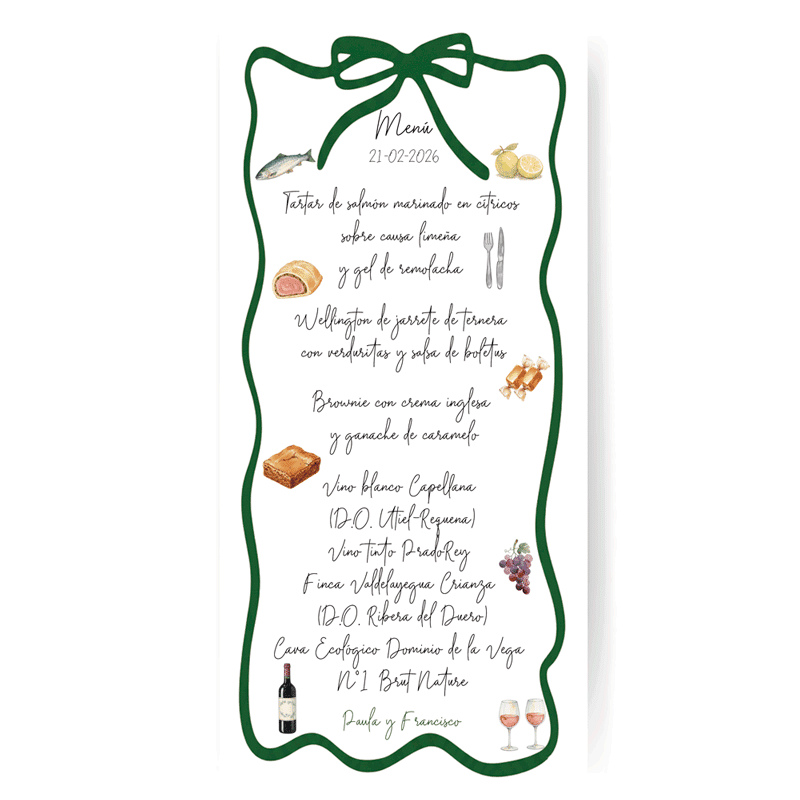 Menú
21-02-2026
Tartar de salmón marinado en cítricos
sobre causa limeña
y gel de remolacha
Wellington de jarrete de ternera
con verduritas y salsa de boletus
Brownie con crema inglesa
y ganache de caramelo
Vino blanco Capellana
(D.O. Utiel-Requena)
Vino tinto PradoRey
Finca Valdelayegua Crianza
(D.O. Ribera del Duero)
Cava Ecológico Dominio de la Vega
Nº1 Brut Nature
Paula y Francisco